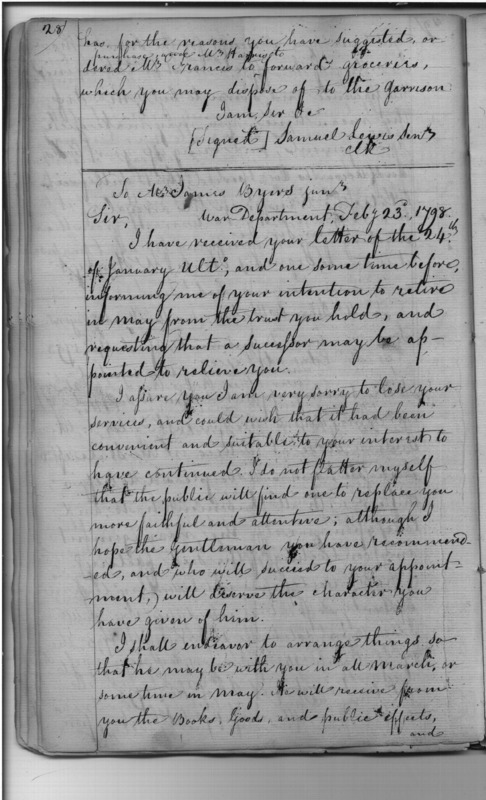 28
has, for the reasons you have suggested, or
purchase and Mr Harris to
dered Mr Francis to forward groceries,
which you may dispose of to the garrison
I am, Sir &c
[Signed] Samuel Lewis Senr
Clk
To Mr James Byers junr
Sir, War Department, Feby 23d 1798.
I have received your letter of the 24th
of January Ulto, and one some time before,
informing me of your intention to retire
in May from the trust you hold, and
requesting that a sucessor may be ap-
pointed to relieve you.
I assure you I am very sorry to lose your
services, and could wish that it had been
convenient and suitable to your interest to
have continued. I do not flatter myself
that the public will find one to replace you
more faithful and attentive; although I
hope the gentleman you have recommend-
ed, and who will succeed to your appoint-
ment, will deserve the character you
have given of him.
I shall endeavor to arrange things so
that he may be with you in all March, or
sometime in May. He will receive from
you the Books, Goods, and public effects,
and